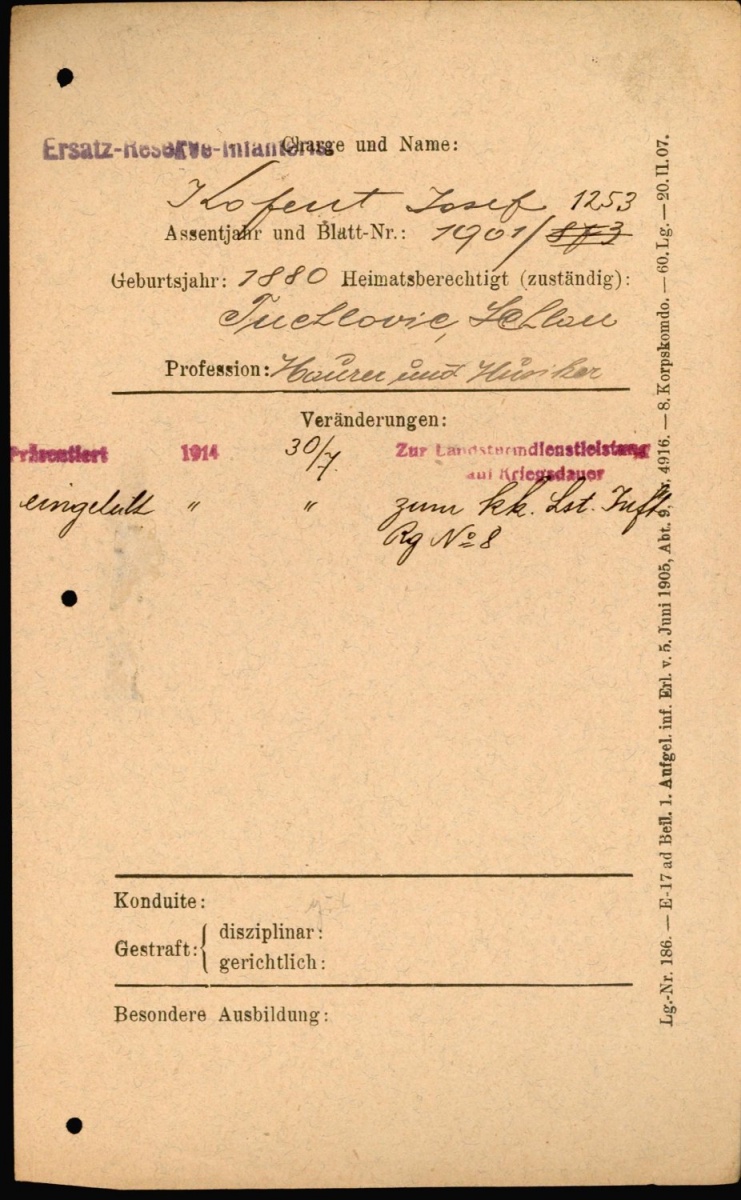 Ersatz-Reserve-Infanterie Charge und Name:
Kofent Josef 1253
Assentjahr und Blatt-Nr.: 1901/873
Geburtsjahr: 1880 Heimatsberechtigt (zuständig):
Tuchlovic, Schlan
Profession: Maurer und Musiker
Veränderungen:
Präsentiert 1914 30/7. Zur Landsturmdienstleistung
auf Kriegsdauer
eingeteilt " " zum kk. Lst. Inft.
Rg No 8
Konduite:
Gestraft: disziplinar:
gerichtlich:
Besondere Ausbildung:
Lg.-Nr. 186. — E-17 ad Beil. 1. Aufgel. inf. Erl. v. 5. Juni 1905, Abt. 9, Nr. 4916. — 8. Korpskomdo. — 60. Lg. — 20. II. 07.